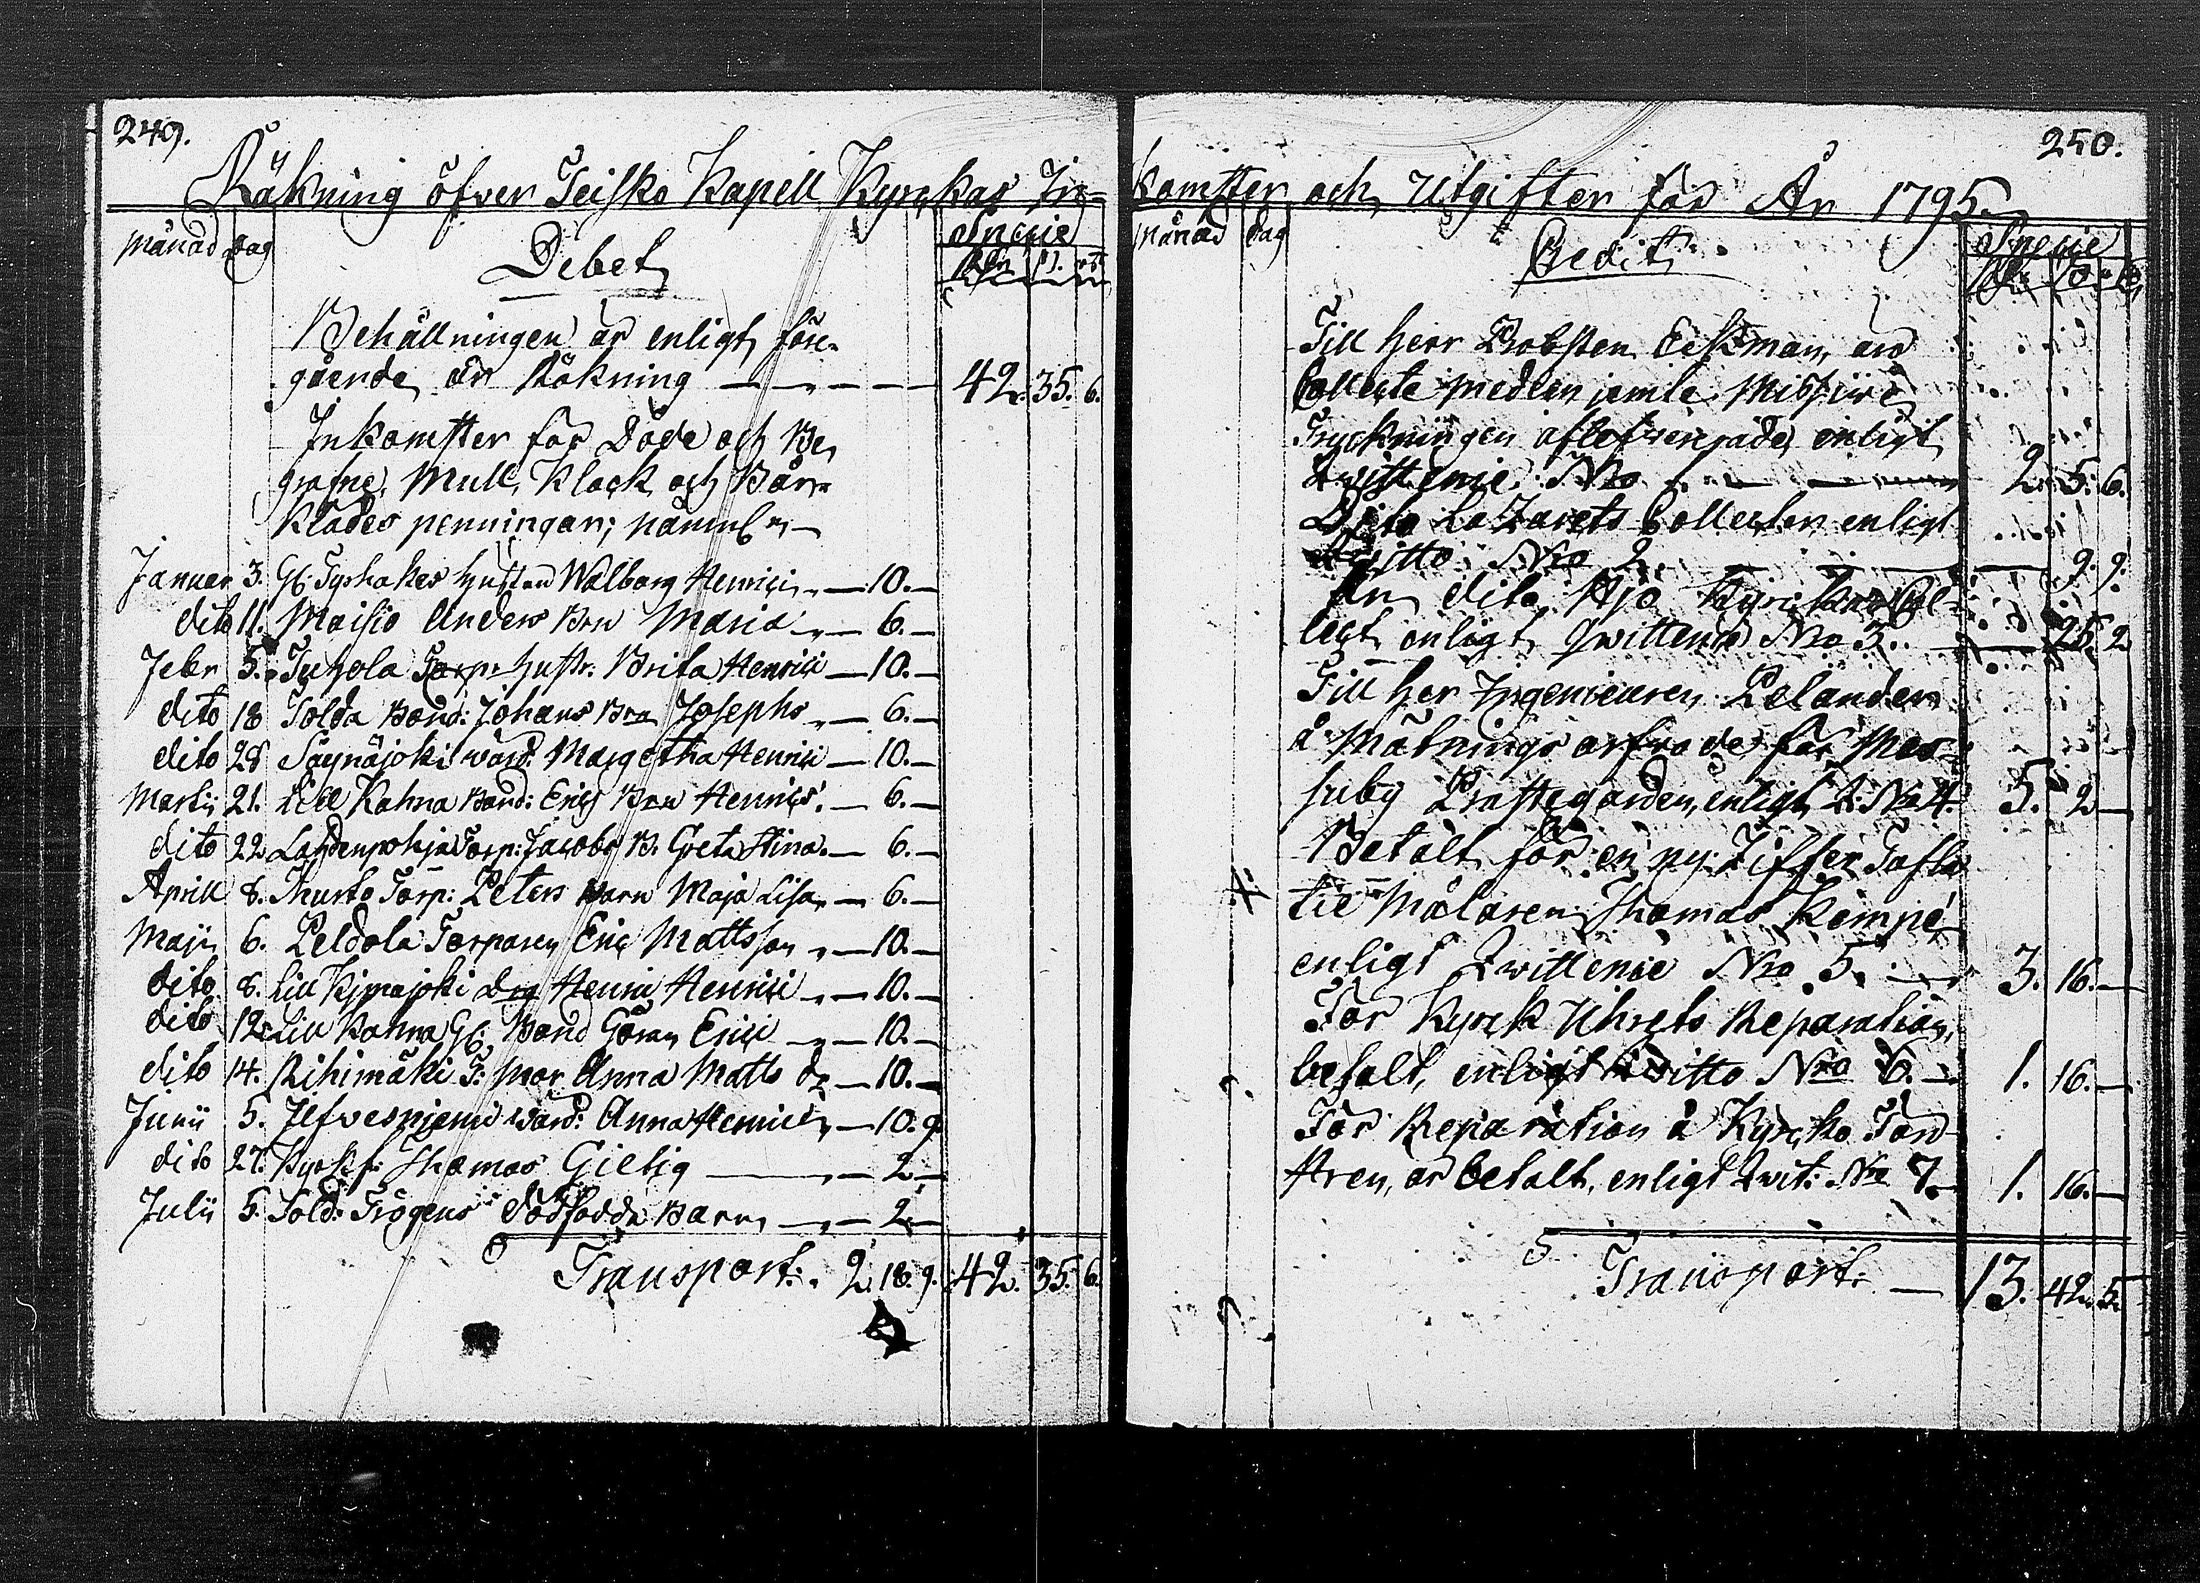 249.
Räkning öfver Teisko Kapell Kyrckas In-
Månad Dag Debet Specie
Rdr sl. rst.
Behållningen är enligt före-
gående års Räkning — — — — 42. 35. 6.
Inkomster för Döde och Be
grafne, Mull, Klock och Bår-
klädes penningar; nämnl:n
Januar 3. Gl: Tyrhakes hustru Walborg Henrici — 10. —
dito 11. Maisio Anders Brn Maria — 6. —
Febr 5. Juhola Torp: hustr. Brita Henrici — 10. —
dito 18 Tolda Bond: Johans Brn Josephs — 6. —
dito 28 Säynäjoki värd: Margetha Henrici — 10. —
Martii 21. Lill Kahra Bond: Erics Brn Henrics. — 6. —
dito 22. Lahdenpohja Torp: Jacobs B. Greta Stina. — 6. —
Aprill 8. Thurto Torp: Peters Barn Maja Lisa — 6. —
Maji 6. Peldola Torparen Eric Mattsson — 10. —
dito 8. Lill Kjmajoki drg Henric Henrici — 10. —
dito 12. Lill Kahra Gl. Bond Göran Erici — 10. —
dito 14. Rihimäki T: Mor Anna Matts dr — 10. —
Junii 5. Ilfvesniemi Värd: Anna Henrici — 10. 9.
dito 27. Kyrkf: Thomas Gielig — 2. —
Julii 5. Sold: Trögens dödfödda Barn — 2. —
Transport: 2. 18. 9. 42. 35. 6.
250.
komster och Utgifter för År 1795.
Månad dag Credit Specie
Till Herr Probsten Eckman, är
Collecte medlen jemte Missive
Tryckningen aflefvererade enligt
Qwittence Nro 1. — — — 2. 5. 6.
Dito Lazarets Collecten enligt
Qvitto Nro 2. — — — 9. 9.
An dito Hjo Kyrckas Col-
lect enligt Qwittence Nro 3. — — 25. 2
Till Her Ingenieuren Pelander
å Mätnings arfvode för Mes-
suby Prästegården, enligt Q: No 4. 5. 2 —
Betalt för en ny Ziffer Tafla
till Målaren Thomas Kempe
enligt Qwittence Nro 5. — 3. 16. —
För Kyrck Uhrets Reparation
betalt, enligt Qvitto Nro 6. — 1. 16. —
För Reparation å Kyrcko Fön
stren, är betalt, enligt Qwit: No 7. 1. 16. —
Transport. — 13. 42. 5.